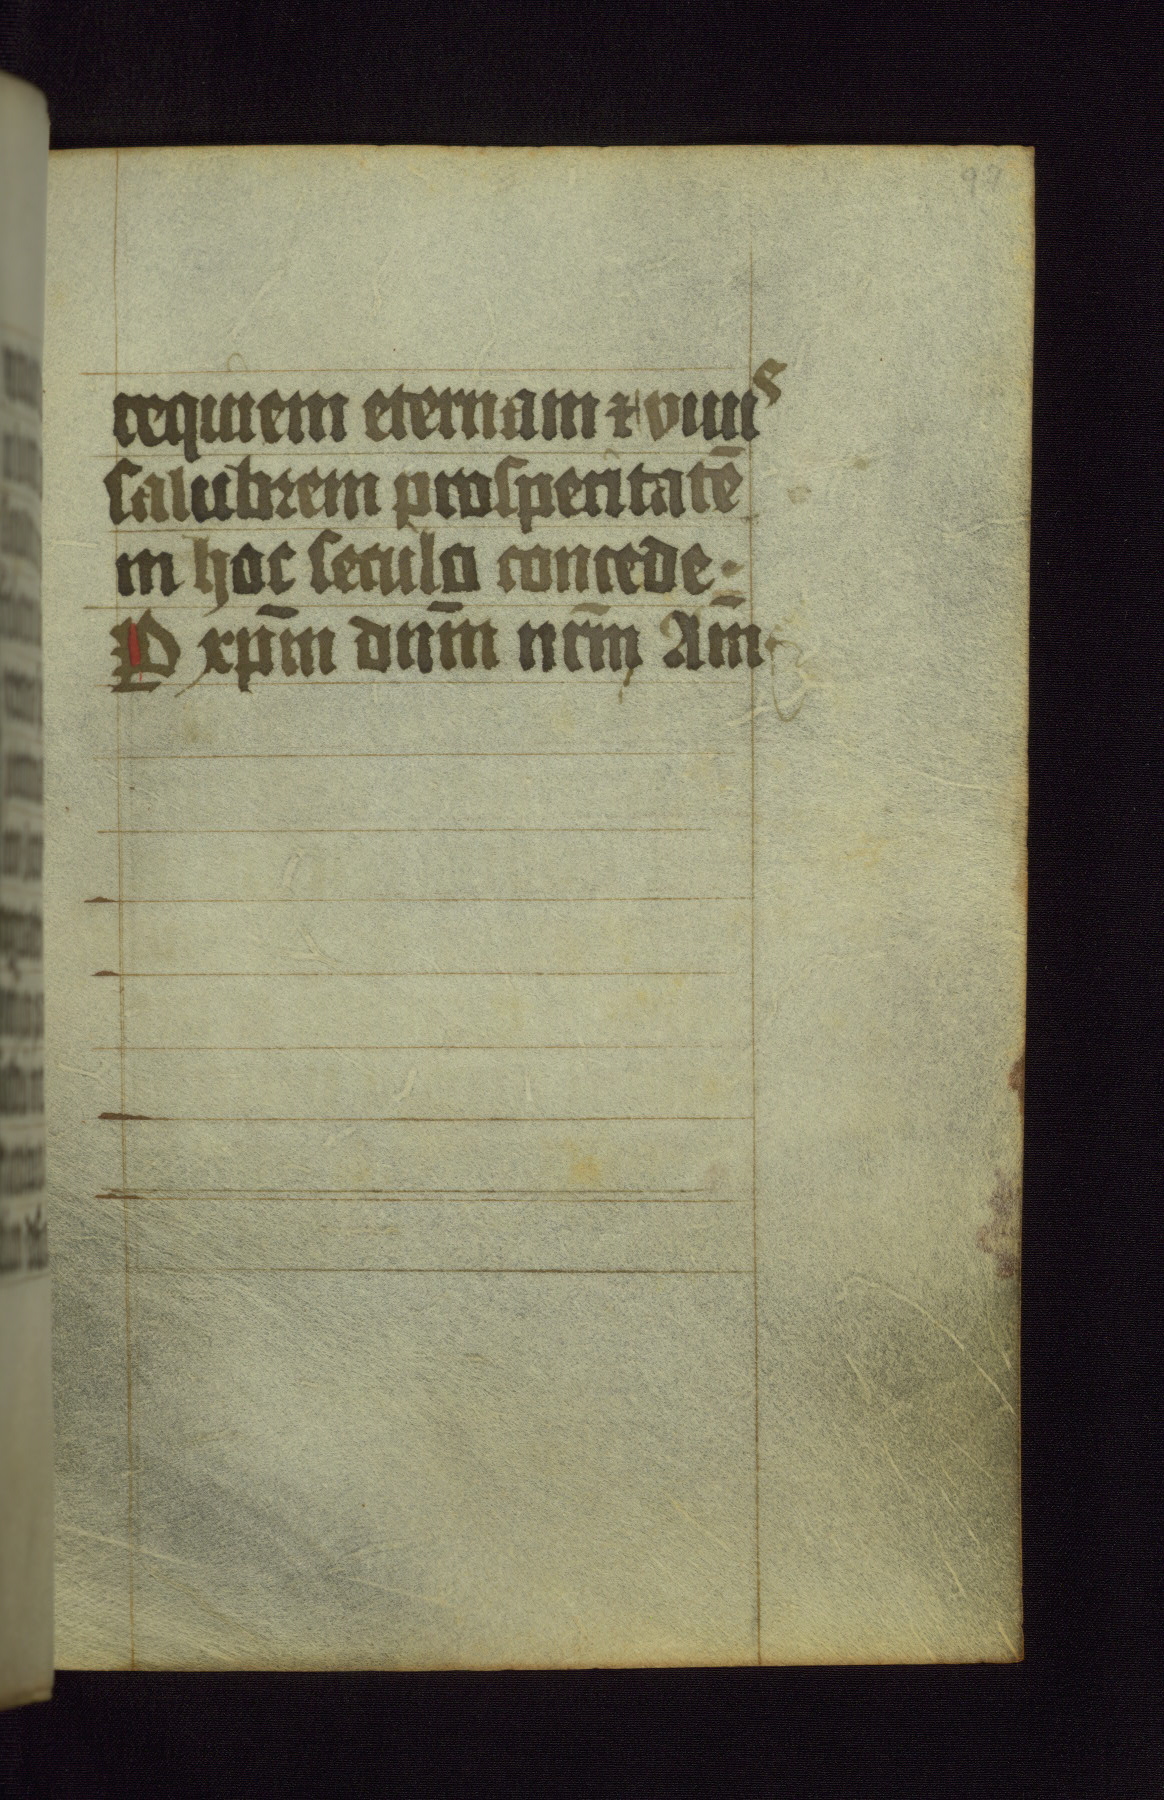 97
requiem eternam ⁊ viuis
salubrem prosperitatē
in hoc seculo concede.
P xp̄m dn̄m nr̄m Am̄.